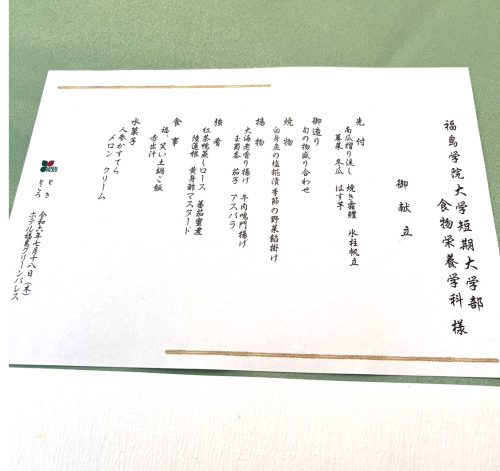 福島学院大学短期大学部
食物栄養学科 様
御献立
先付
南瓜摺り流し 焼き霜鱧 氷柱帆立
蓴菜 冬瓜 はす芋
御造り
旬の物盛り合わせ
焼物
白身魚の塩糀漬季節の野菜餡掛け
揚物
大海老香り揚げ 牛肉鳴門揚げ
玉蜀黍 茄子 アスパラ
強肴
紅茶鴨蒸しロース 蕃茄蜜煮
陸蓮根 黄身酢マスタード
食事
福、笑い土鍋ご飯
赤出汁
水菓子
人参かすてら
メロン クリーム
とき 令和六年七月十八日（木）
ところ ホテル福島グリーンパレス